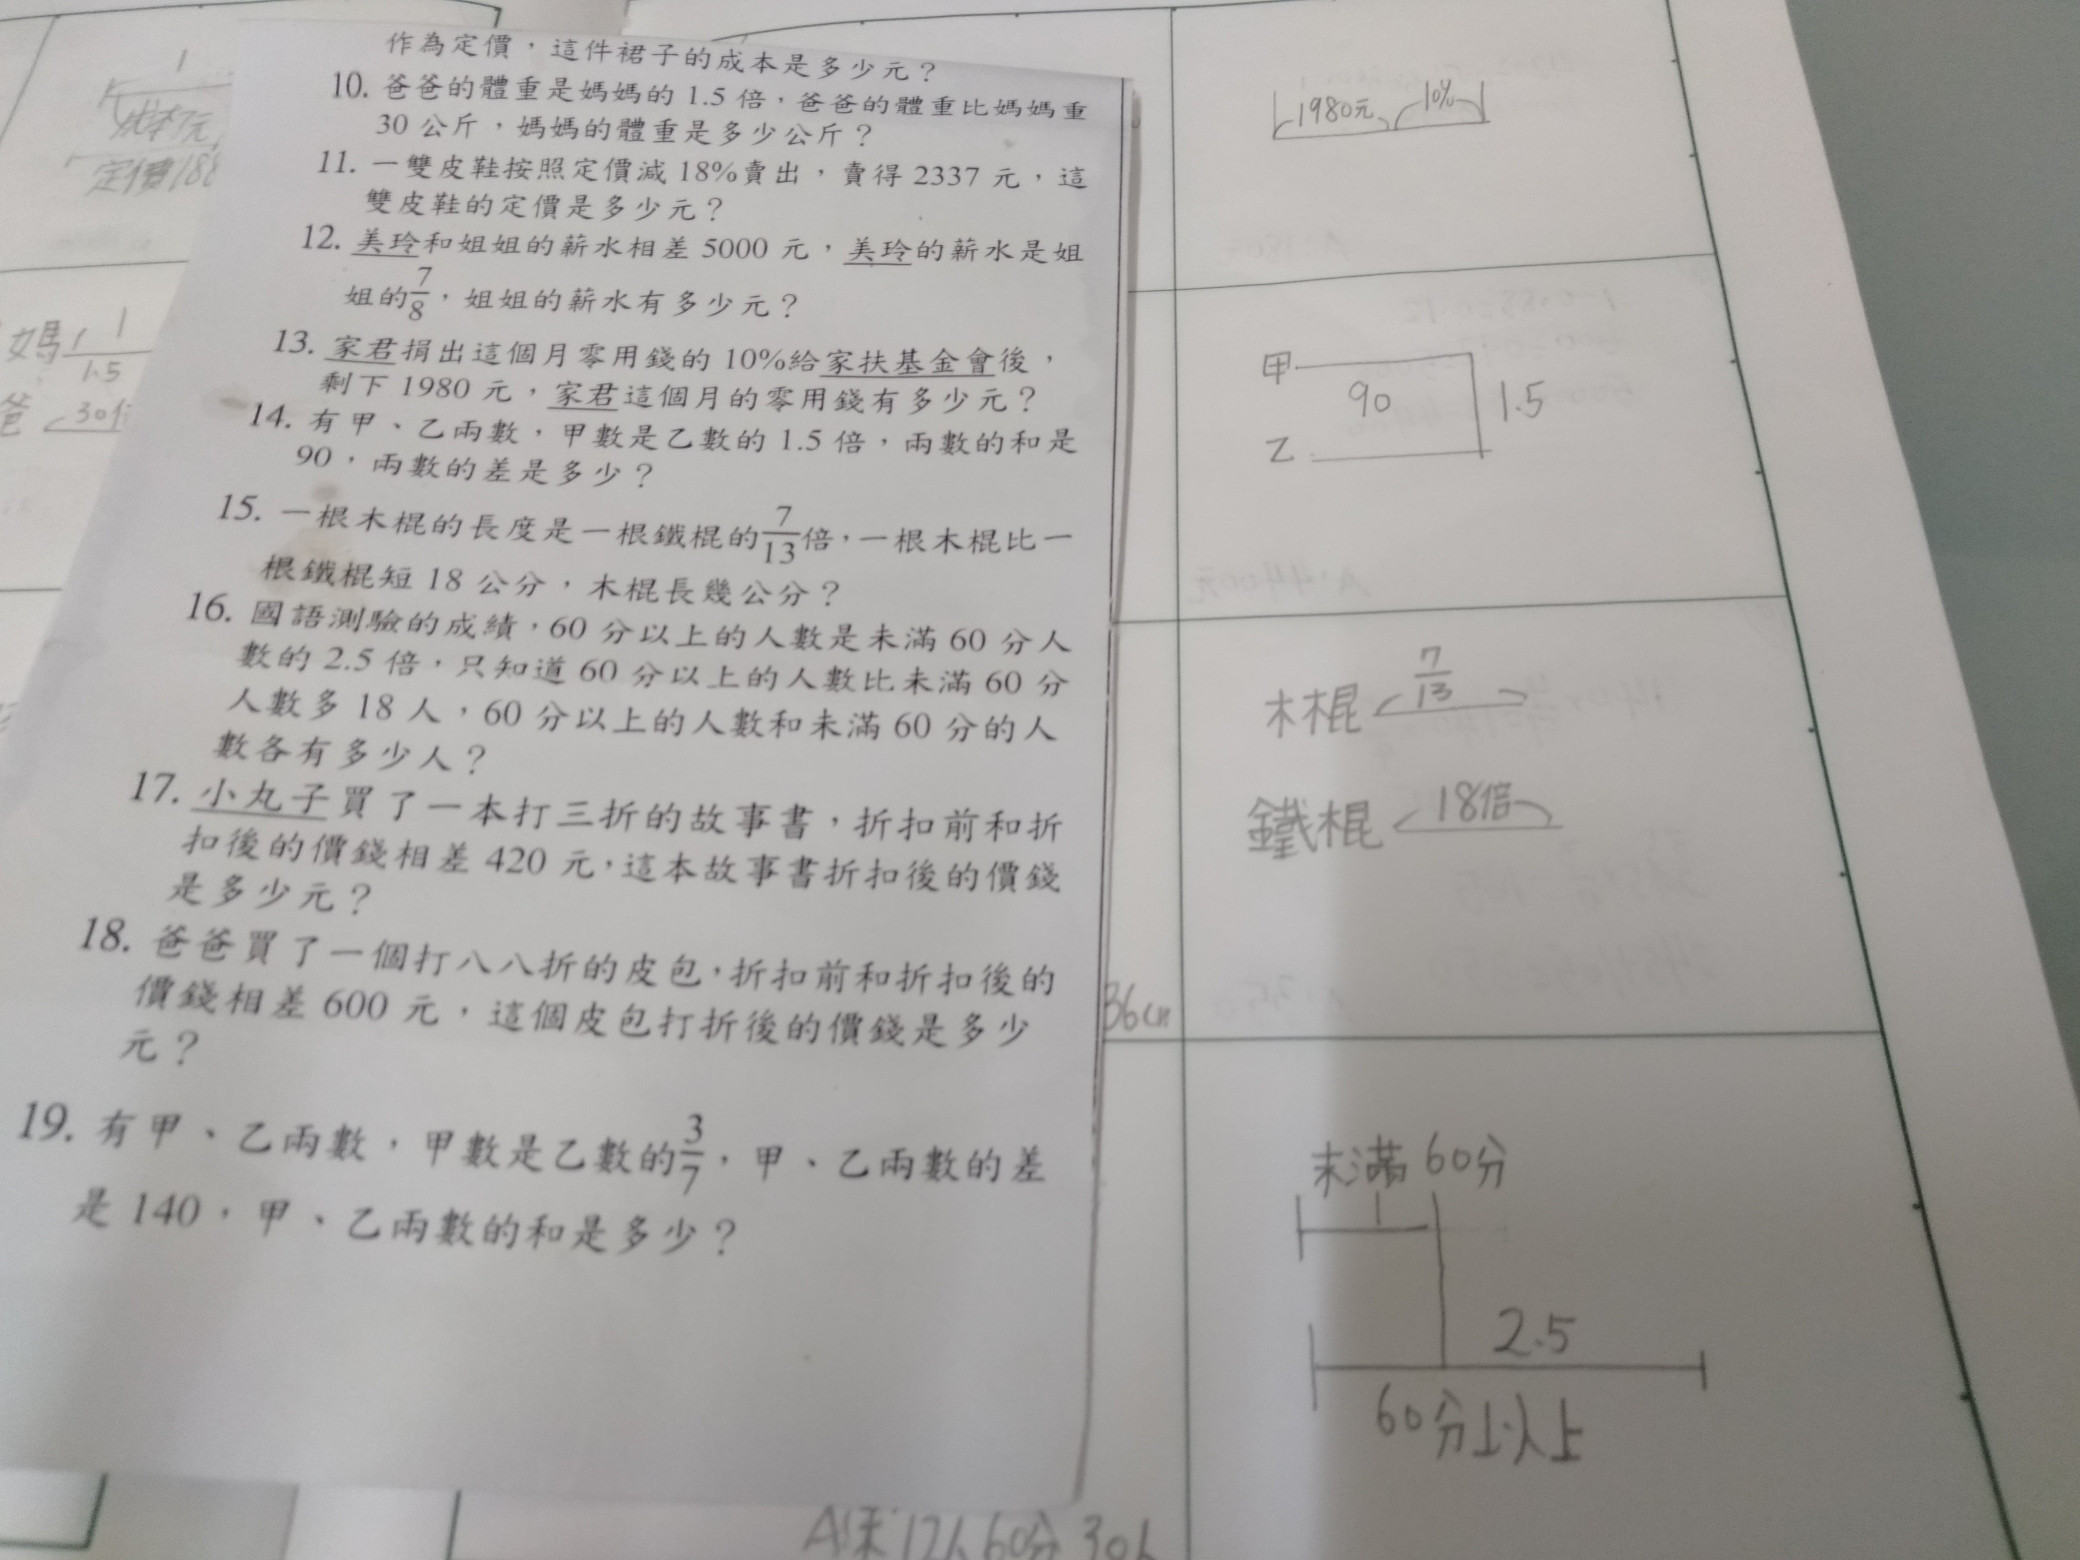 作為定價，這件裙子的成本是多少元？
10. 爸爸的體重是媽媽的 1.5 倍，爸爸的體重比媽媽重
30 公斤，媽媽的體重是多少公斤？
11. 一雙皮鞋按照定價減 18%賣出，賣得 2337 元，這
雙皮鞋的定價是多少元？
12. 美玲和姐姐的薪水相差 5000 元，美玲的薪水是姐
姐的7/8，姐姐的薪水有多少元？
13. 家君捐出這個月零用錢的 10%給家扶基金會後，
剩下 1980 元，家君這個月的零用錢有多少元？
14. 有甲、乙兩數，甲數是乙數的 1.5 倍，兩數的和是
90，兩數的差是多少？
15. 一根木棍的長度是一根鐵棍的7/13倍，一根木棍比一
根鐵棍短 18 公分，木棍長幾公分？
16. 國語測驗的成績，60 分以上的人數是未滿 60 分人
數的 2.5 倍，只知道 60 分以上的人數比未滿 60 分
人數多 18 人，60 分以上的人數和未滿 60 分的人
數各有多少人？
17. 小丸子買了一本打三折的故事書，折扣前和折
扣後的價錢相差 420 元，這本故事書折扣後的價錢
是多少元？
18. 爸爸買了一個打八八折的皮包，折扣前和折扣後的
價錢相差 600 元，這個皮包打折後的價錢是多少
元？
19. 有甲、乙兩數，甲數是乙數的3/7，甲、乙兩數的差
是 140，甲、乙兩數的和是多少？
1
成本?元
定價188
媽 1
1.5
爸 30
1980元 10%
甲
90 1.5
乙
木棍 7/13
鐵棍 18倍
36cm
未滿60分
1
2.5
60分以上
A:未12人 60分 30人